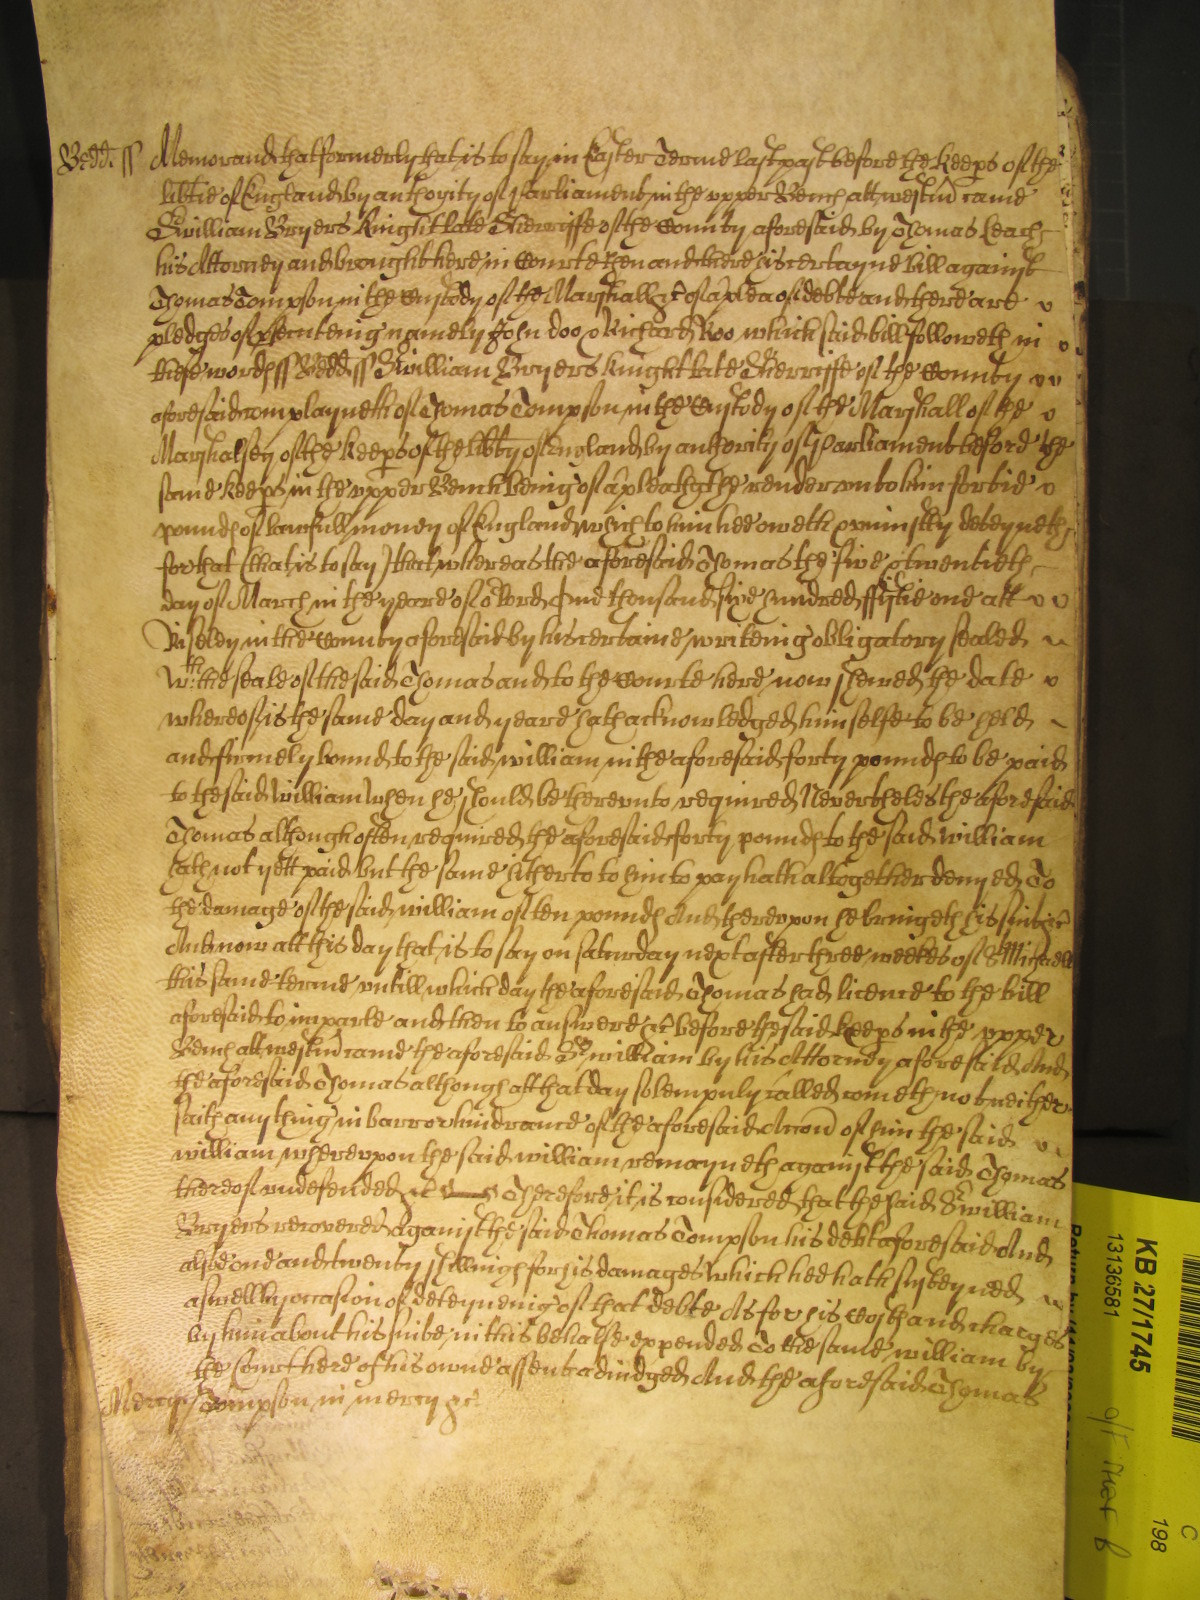 Bedd. ss Memorand that formerly that is to say in Easter Terme last past before the Keeps of the
libtie of England by authority of Parliament in the upper Bench att Westm̃ came
Sr William Bryers Knight late Sherriffe of the County aforesaid by Thomas Leach
his Attorney and brought here in Courte then and there his certayne bill against
Thomas Tompson in the Custody of the Marshall &c of a plea of debte and there are
pledges of psecuteing namely John Doo & Richard Roo which said bill followeth in
these words ss Bedd ss Sr William Bryers Knight late Sherriffe of the County
aforesaid complayneth of Thomas Tompson in the Custody of the Marshall of the
Marshalsey of the Keeps of the libty of England by authority of Parliament before the
same Keeps in the upper Bench being of a plea that he render unto him fortie
pounds of lawfull money of England which to him hee oweth & uniustly deteyneth
for that (that is to say) that whereas the aforesaid Thomas the five & twentieth
day of March in the yeare of or Lord One thousand sixe hundred fiftie one att
Riseley in the County aforesaid by his certaine writeing obligatory sealed
wth the seale of the said Thomas and to the Courte here now shewed the date
whereof is the same day and yeare hath acknowledged himselfe to be held
and firmely bound to the said William in the aforesaid forty pounds to be paid
to the said William when he should be thereunto required Nevertheles the aforesaid
Thomas although often required the aforesaid forty pounds to the said William
hath not yett paid but the same hitherto to him to pay hath altogether denyed To
the damage of the said William of ten pounds And thereupon he bringeth his suit &c
And now att this day that is to say on Saturday next after three weekes of St Michaell
this same terme untill which day the aforesaid Thomas had licence to the bill
aforesaid to imparle and then to answere &c before the said Keeps in the upper
Bench att Westm̃ came the aforesaid Sr William by his Attorney aforesaid And
the aforesaid Thomas although att that day solempnly called cometh not neither
saith anything in barr or hindrance of the aforesaid Accon̄ of him the said
William whereupon the said William remayneth against the said Thomas
thereof undefended &c Therefore it is considered that the said Sr William
Bryers recovered Against the said Thomas Tompson his debt aforesaid And
alsoe one and twenty shillings for his damages which hee hath susteyned
aswell by occasion of deteyneing of that debte As for his Costs and charges
by him about his suite in this behalfe expended To the same William by
the Court here of his owne assent adiudged And the aforesaid Thomas
Mercy Tompson in mercy &c
KB 27/1745
13136581
198
C